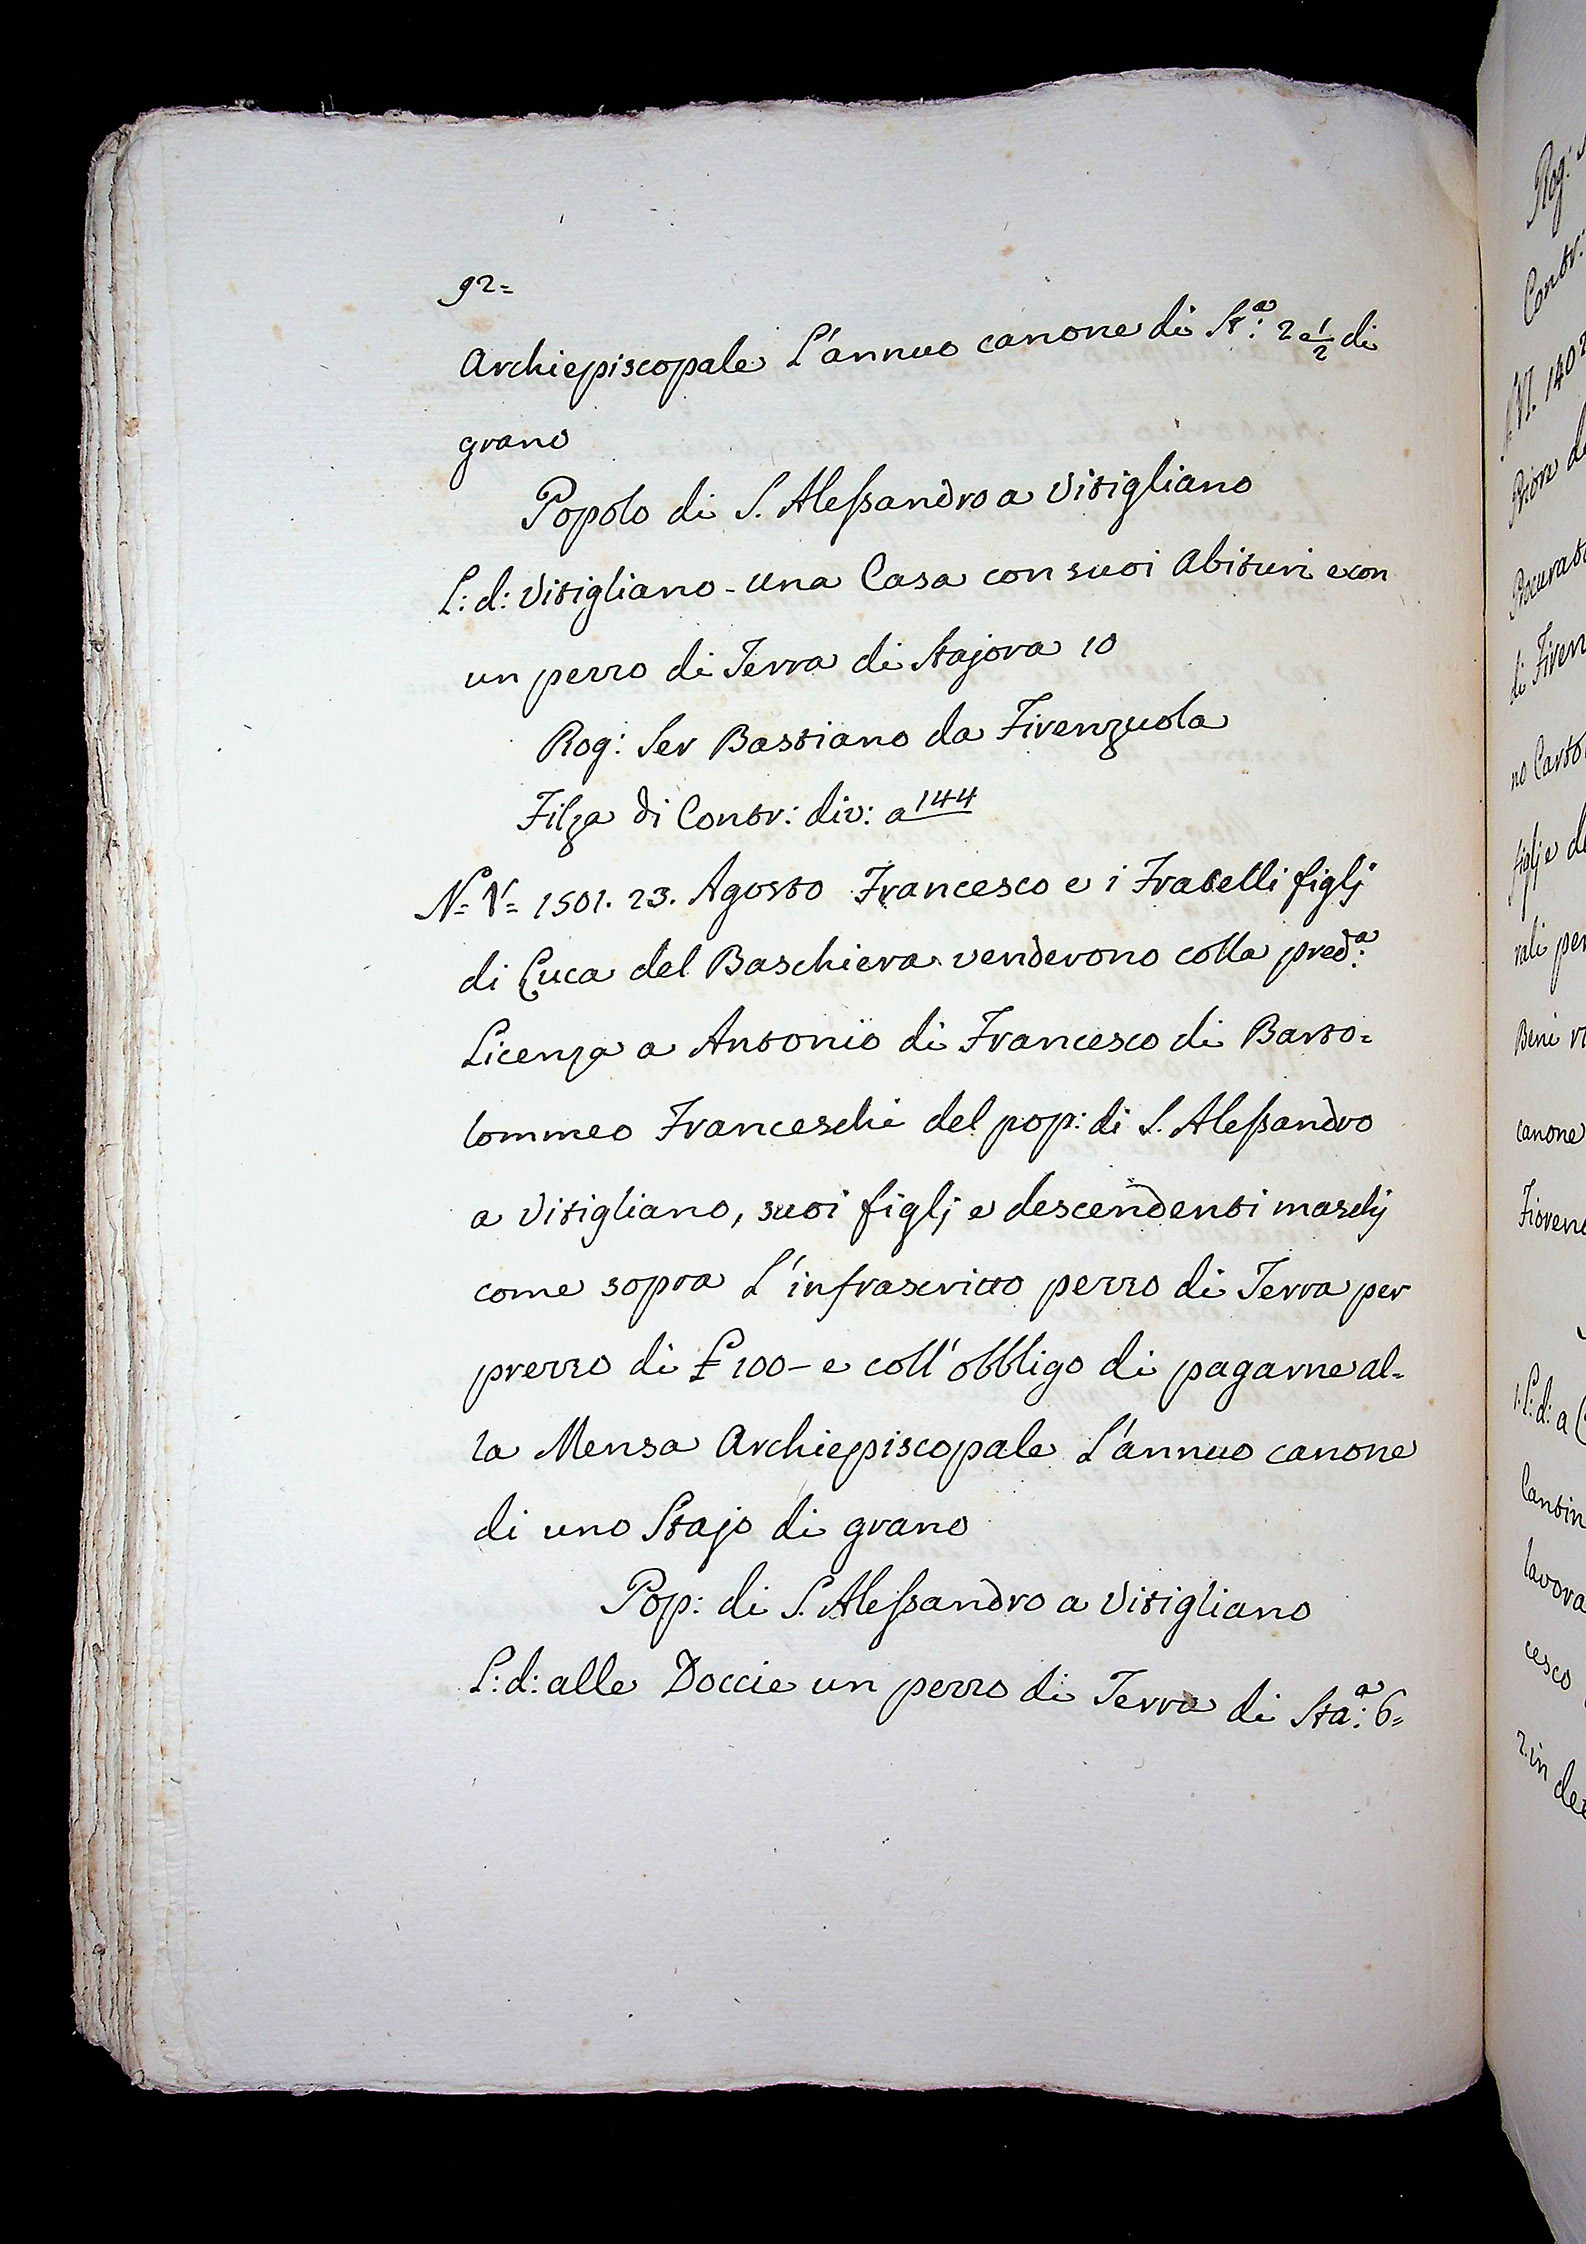 92=
Archiepiscopale L'annuo canone di St:ª 2 e 1/2 di
grano
Popolo di S. Alessandro a Vitigliano
L: d: Vitigliano - una Casa con suoi Abituri e con
un pezzo di Terra di Stajora 10
Rog: Ser Bastiano da Firenzuola
Filza di Contr: div: a 144
N= V= 1501. 23. Agosto Francesco e i Fratelli figlj
di Luca del Baschiera venderono colla pred:ª
Licenza a Antonio di Francesco di Barto=
lommeo Franceschi del pop: di S. Alessandro
a Vitigliano, suoi figlj e descendenti maschj
come sopra L'infrascritto pezzo di Terra per
prezzo di £ 100 – e coll'obbligo di pagarne al=
la Mensa Archiepiscopale L'annuo canone
di uno Stajo di grano
Pop: di S. Alessandro a Vitigliano
L: d: alle Doccie un pezzo di Terra di Sta:ª 6=
Rog:
Contr:
VI. 1402
Priore
di Firen
figlj e
rali per
Beni
canone
Fiorene
1. L: d: a
lavora
cesco
2. in